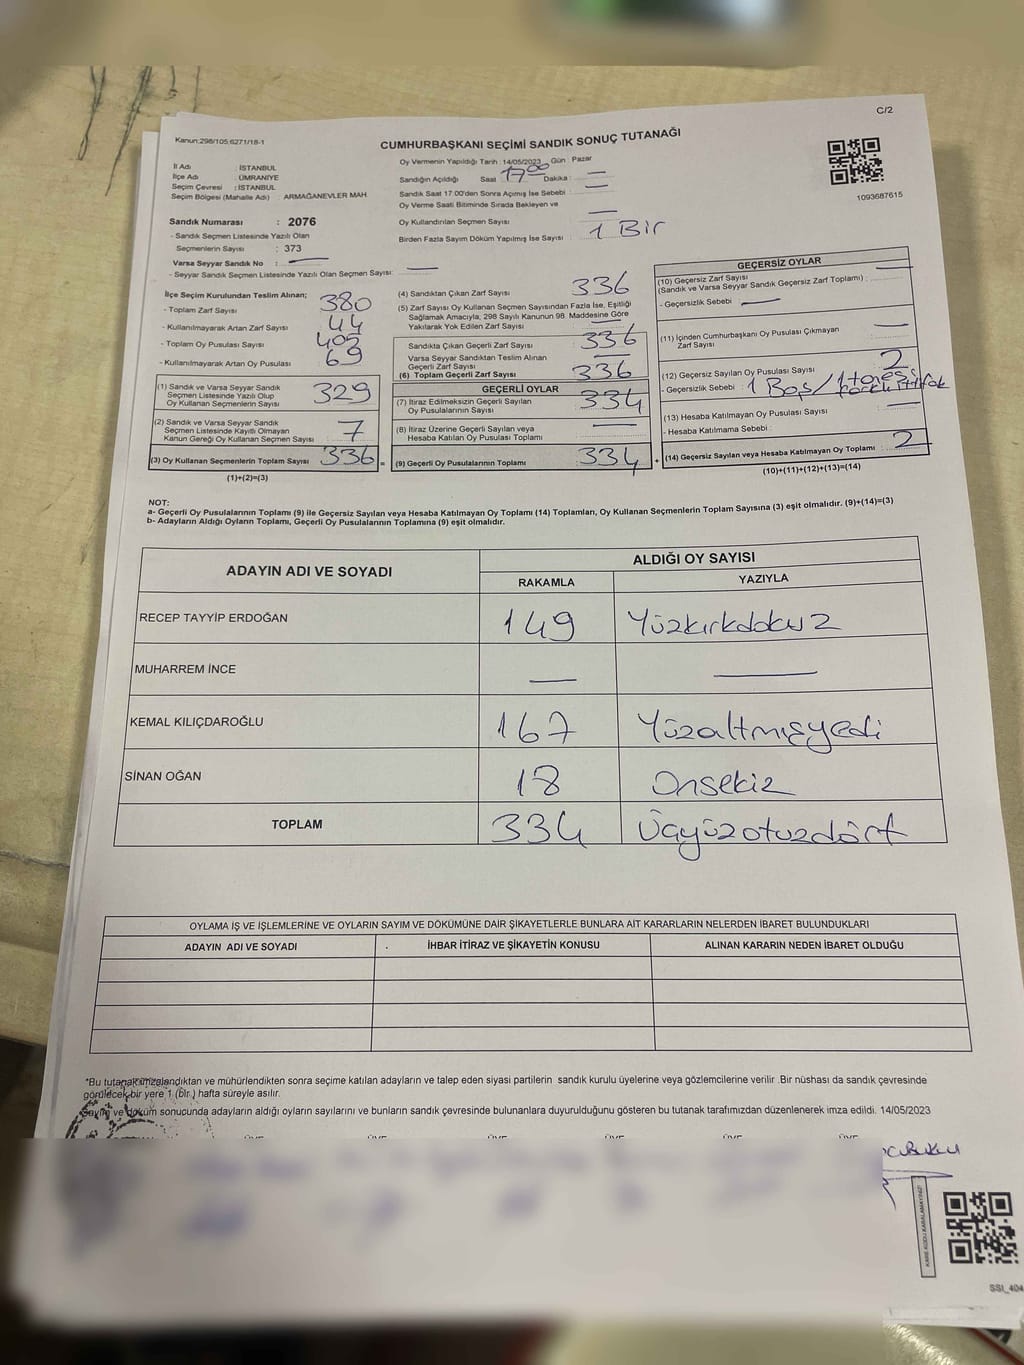 C/2
Kanun:298/105;6271/18-1
CUMHURBAŞKANI SEÇİMİ SANDIK SONUÇ TUTANAĞI
1093687615
İl Adı : İSTANBUL
İlçe Adı : ÜMRANİYE
Seçim Çevresi : İSTANBUL
Seçim Bölgesi (Mahalle Adı) ARMAĞANEVLER MAH.
Sandık Numarası : 2076
- Sandık Seçmen Listesinde Yazılı Olan
Seçmenlerin Sayısı : 373
Varsa Seyyar Sandık No : —
- Seyyar Sandık Seçmen Listesinde Yazılı Olan Seçmen Sayısı: —
Oy Vermenin Yapıldığı Tarih : 14/05/2023 Gün : Pazar
Sandığın Açıldığı Saat 17 00 Dakika : —
Sandık Saat 17.00'den Sonra Açımış İse Sebebi : —
Oy Verme Saati Bitiminde Sırada Bekleyen ve
Oy Kullandırılan Seçmen Sayısı : —
Birden Fazla Sayım Döküm Yapılmış İse Sayısı : 1 Bir
İlçe Seçim Kurulundan Teslim Alınan;
- Toplam Zarf Sayısı 380
- Kullanılmayarak Artan Zarf Sayısı 44
- Toplam Oy Pusulası Sayısı 405
- Kullanılmayarak Artan Oy Pusulası 69
(1) Sandık ve Varsa Seyyar Sandık
Seçmen Listesinde Yazılı Olup
Oy Kullanan Seçmenlerin Sayısı 329
(2) Sandık ve Varsa Seyyar Sandık
Seçmen Listesinde Kayıtlı Olmayan
Kanun Gereği Oy Kullanan Seçmen Sayısı 7
(3) Oy Kullanan Seçmenlerin Toplam Sayısı 336 =
(1)+(2)=(3)
(4) Sandıktan Çıkan Zarf Sayısı 336
(5) Zarf Sayısı Oy Kullanan Seçmen Sayısından Fazla İse, Eşitliği
Sağlamak Amacıyla, 298 Sayılı Kanunun 98. Maddesine Göre
Yakılarak Yok Edilen Zarf Sayısı —
Sandıkta Çıkan Geçerli Zarf Sayısı 336
Varsa Seyyar Sandıktan Teslim Alınan
Geçerli Zarf Sayısı —
(6) Toplam Geçerli Zarf Sayısı 336
GEÇERLİ OYLAR
(7) İtiraz Edilmeksizin Geçerli Sayılan
Oy Pusulalarının Sayısı 334
(8) İtiraz Üzerine Geçerli Sayılan veya
Hesaba Katılan Oy Pusulası Toplamı —
(9) Geçerli Oy Pusulalarının Toplamı 334 +
GEÇERSİZ OYLAR
(10) Geçersiz Zarf Sayısı
(Sandık ve Varsa Seyyar Sandık Geçersiz Zarf Toplamı) : —
- Geçersizlik Sebebi —
(11) İçinden Cumhurbaşkanı Oy Pusulası Çıkmayan
Zarf Sayısı —
(12) Geçersiz Sayılan Oy Pusulası Sayısı 2
- Geçersizlik Sebebi : 1 Boş / 1 tanesi
farklı ittifak
(13) Hesaba Katılmayan Oy Pusulası Sayısı —
- Hesaba Katılmama Sebebi :
(14) Geçersiz Sayılan veya Hesaba Katılmayan Oy Toplamı : 2
(10)+(11)+(12)+(13)=(14)
NOT:
a- Geçerli Oy Pusulalarının Toplamı (9) ile Geçersiz Sayılan veya Hesaba Katılmayan Oy Toplamı (14) Toplamları, Oy Kullanan Seçmenlerin Toplam Sayısına (3) eşit olmalıdır. (9)+(14)=(3)
b- Adayların Aldığı Oyların Toplamı, Geçerli Oy Pusulalarının Toplamına (9) eşit olmalıdır.
ADAYIN ADI VE SOYADI
ALDIĞI OY SAYISI
RAKAMLA YAZIYLA
RECEP TAYYİP ERDOĞAN 149 Yüzkırkdokuz
MUHARREM İNCE — —
KEMAL KILIÇDAROĞLU 167 Yüzaltmışyedi
SİNAN OĞAN 18 Onsekiz
TOPLAM 334 Üçyüzotuzdört
OYLAMA İŞ VE İŞLEMLERİNE VE OYLARIN SAYIM VE DÖKÜMÜNE DAİR ŞİKAYETLERLE BUNLARA AİT KARARLARIN NELERDEN İBARET BULUNDUKLARI
ADAYIN ADI VE SOYADI İHBAR İTİRAZ VE ŞİKAYETİN KONUSU ALINAN KARARIN NEDEN İBARET OLDUĞU
*Bu tutanak imzalandıktan ve mühürlendikten sonra seçime katılan adayların ve talep eden siyasi partilerin sandık kurulu üyelerine veya gözlemcilerine verilir .Bir nüshası da sandık çevresinde
görülecek bir yere 1 (bir.) hafta süreyle asılır.
Sayım ve döküm sonucunda adayların aldığı oyların sayılarını ve bunların sandık çevresinde bulunanlara duyurulduğunu gösteren bu tutanak tarafımızdan düzenlenerek imza edildi. 14/05/2023
ÜYE ÜYE ÜYE ÜYE ÜYE ÜYE
KARE KODU KARALAMAYINIZ!
SSI_404